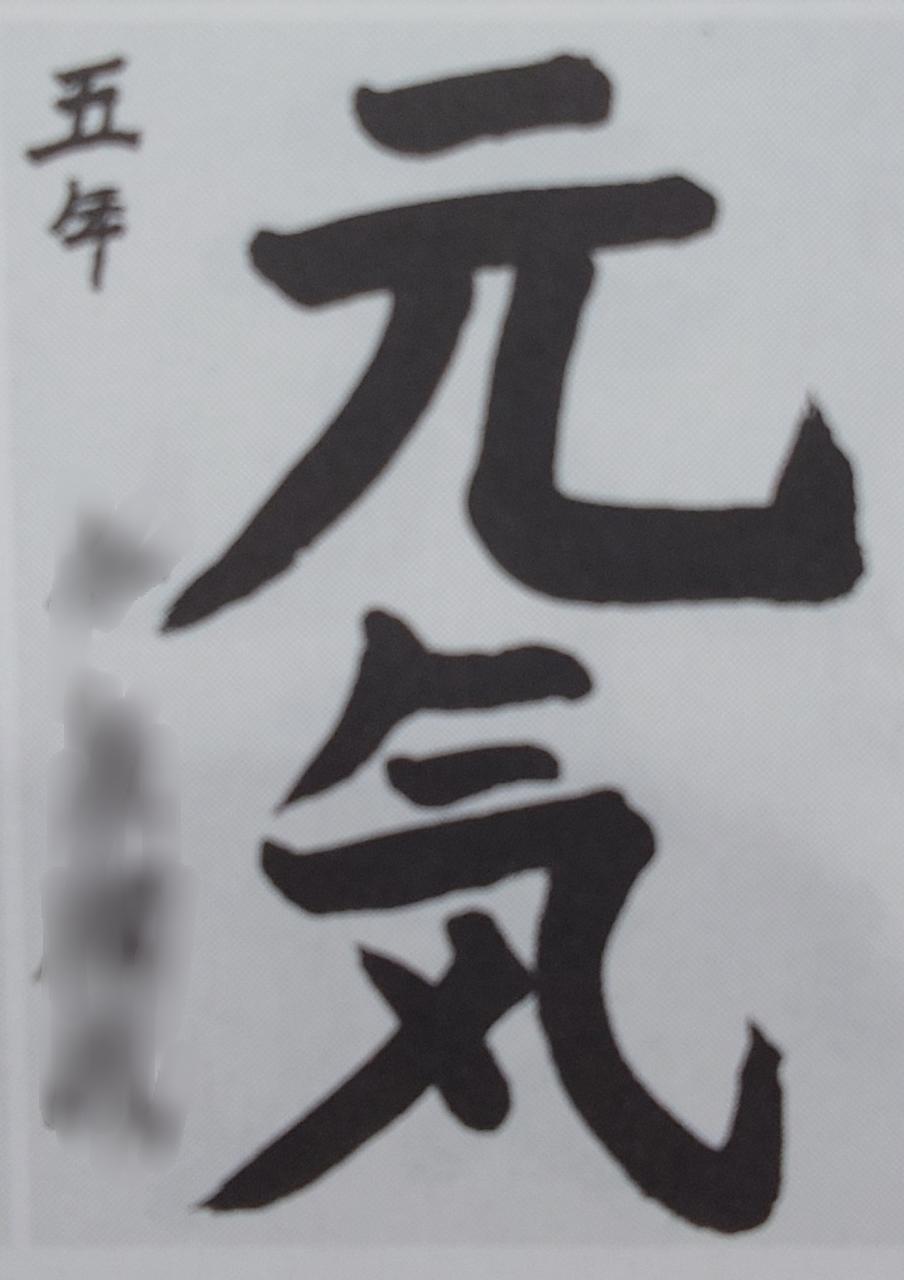 元気
五年